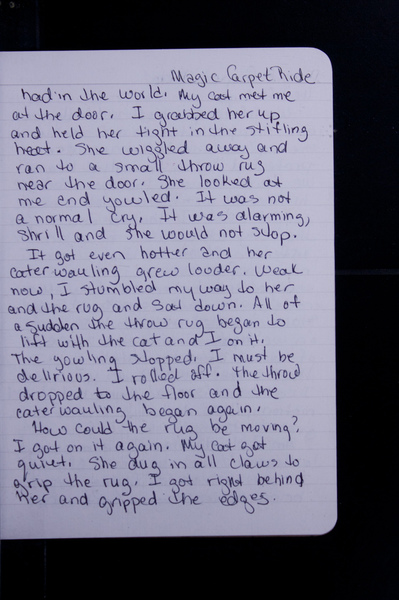 Magic Carpet Ride
had in the world. My cat met me
at the door. I grabbed her up
and held her tight in the stifling
heat. She wiggled away and
ran to a small throw rug
near the door. She looked at
me and yowled. It was not
a normal cry, It was alarming,
Shrill and she would not stop.
It got even hotter and her
caterwauling grew louder. Weak
now, I stumbled my way to her
and the rug and sat down. All of
a sudden the throw rug began to
lift with the cat and I on it.
The yowling stopped. I must be
delirious. I rolled off. The throw
dropped to the floor and the
caterwauling began again.
How could the rug be moving?
I got on it again. My cat got
quiet. She dug in all claws to
grip the rug. I got right behind
her and gripped the edges.